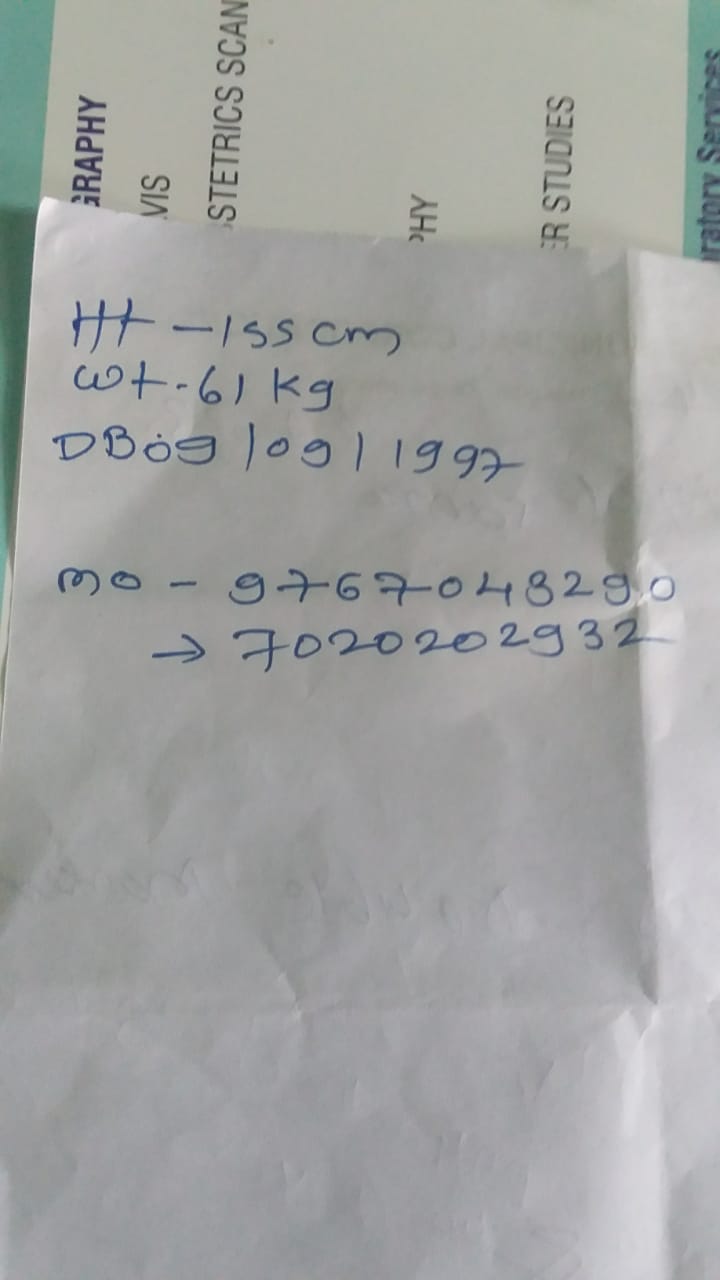 GRAPHY
VIS
STETRICS SCAN
PHY
ER STUDIES
ratory Services
Ht - 155 cm
wt - 61 kg
DB 09/09/1997
mo - 9767048290
→ 7020202932